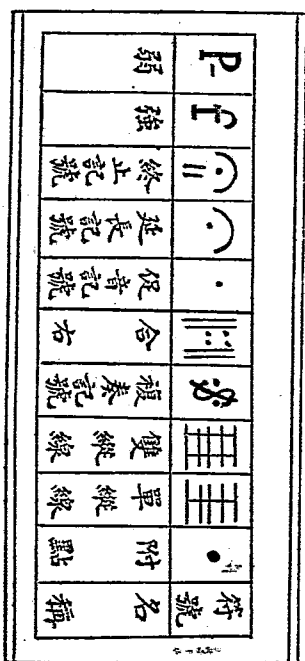 符號 名稱
附點
單縱線
雙縱線
複奏記號
合右
促音記號
延長記號
終止記號
f 強
P 弱